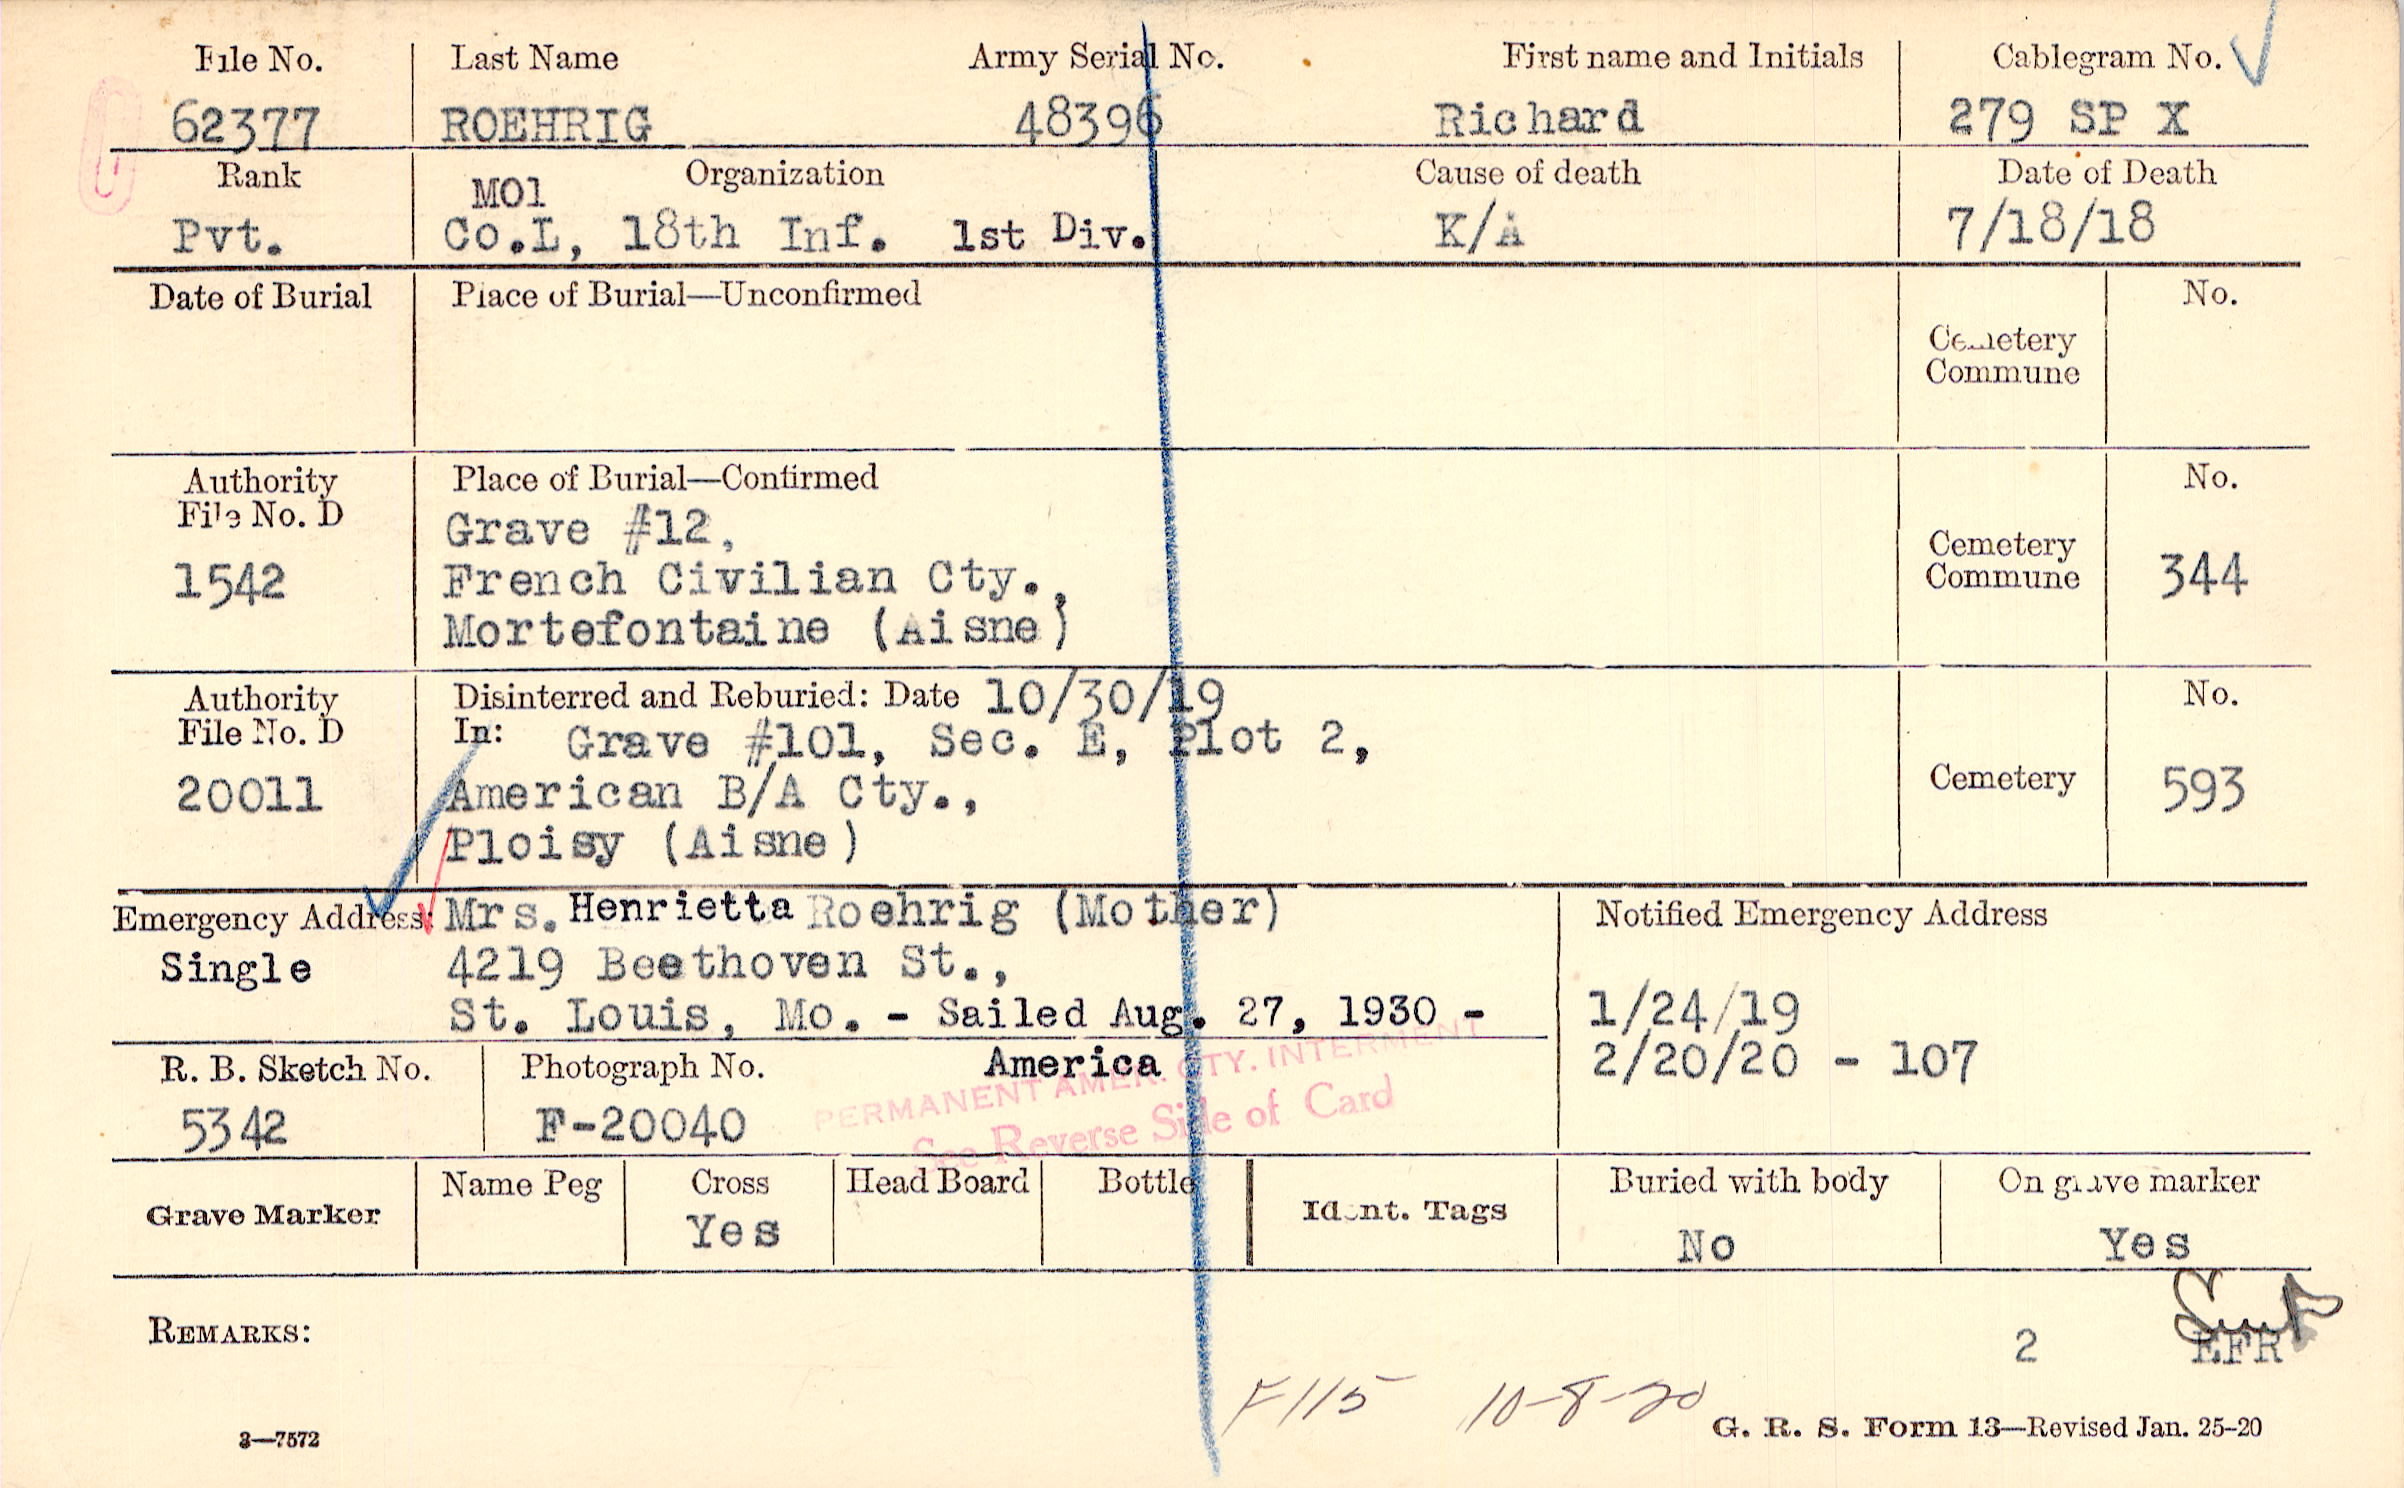 File No. Last Name Army Serial No. First name and Initials Cablegram No.
62377 ROEHRIG 48396 Richard 279 SP X
Rank Organization Cause of death Date of Death
MO1
Pvt. Co.L, 18th Inf. 1st Div. K/A 7/18/18
Date of Burial Place of Burial—Unconfirmed No.
Cemetery
Commune
Authority Place of Burial—Confirmed No.
File No. D Grave #12,
1542 French Civilian Cty., Cemetery
Commune 344
Mortefontaine (Aisne)
Authority Disinterred and Reburied: Date 10/30/19 No.
File No. D In: Grave #101, Sec. E, Plot 2,
20011 American B/A Cty., Cemetery 593
Ploisy (Aisne)
Emergency Address: Mrs. Henrietta Roehrig (Mother) Notified Emergency Address
Single 4219 Beethoven St.,
St. Louis, Mo. - Sailed Aug. 27, 1930 - 1/24/19
America 2/20/20 - 107
R. B. Sketch No. Photograph No.
PERMANENT AMER. CTY. INTERMENT
See Reverse Side of Card
5342 F-20040
Grave Marker Name Peg Cross Head Board Bottle Ident. Tags Buried with body On grave marker
Yes No Yes
REMARKS: 2 EFR
F115 10-8-20
3—7572 G. R. S. Form 13—Revised Jan. 25-20